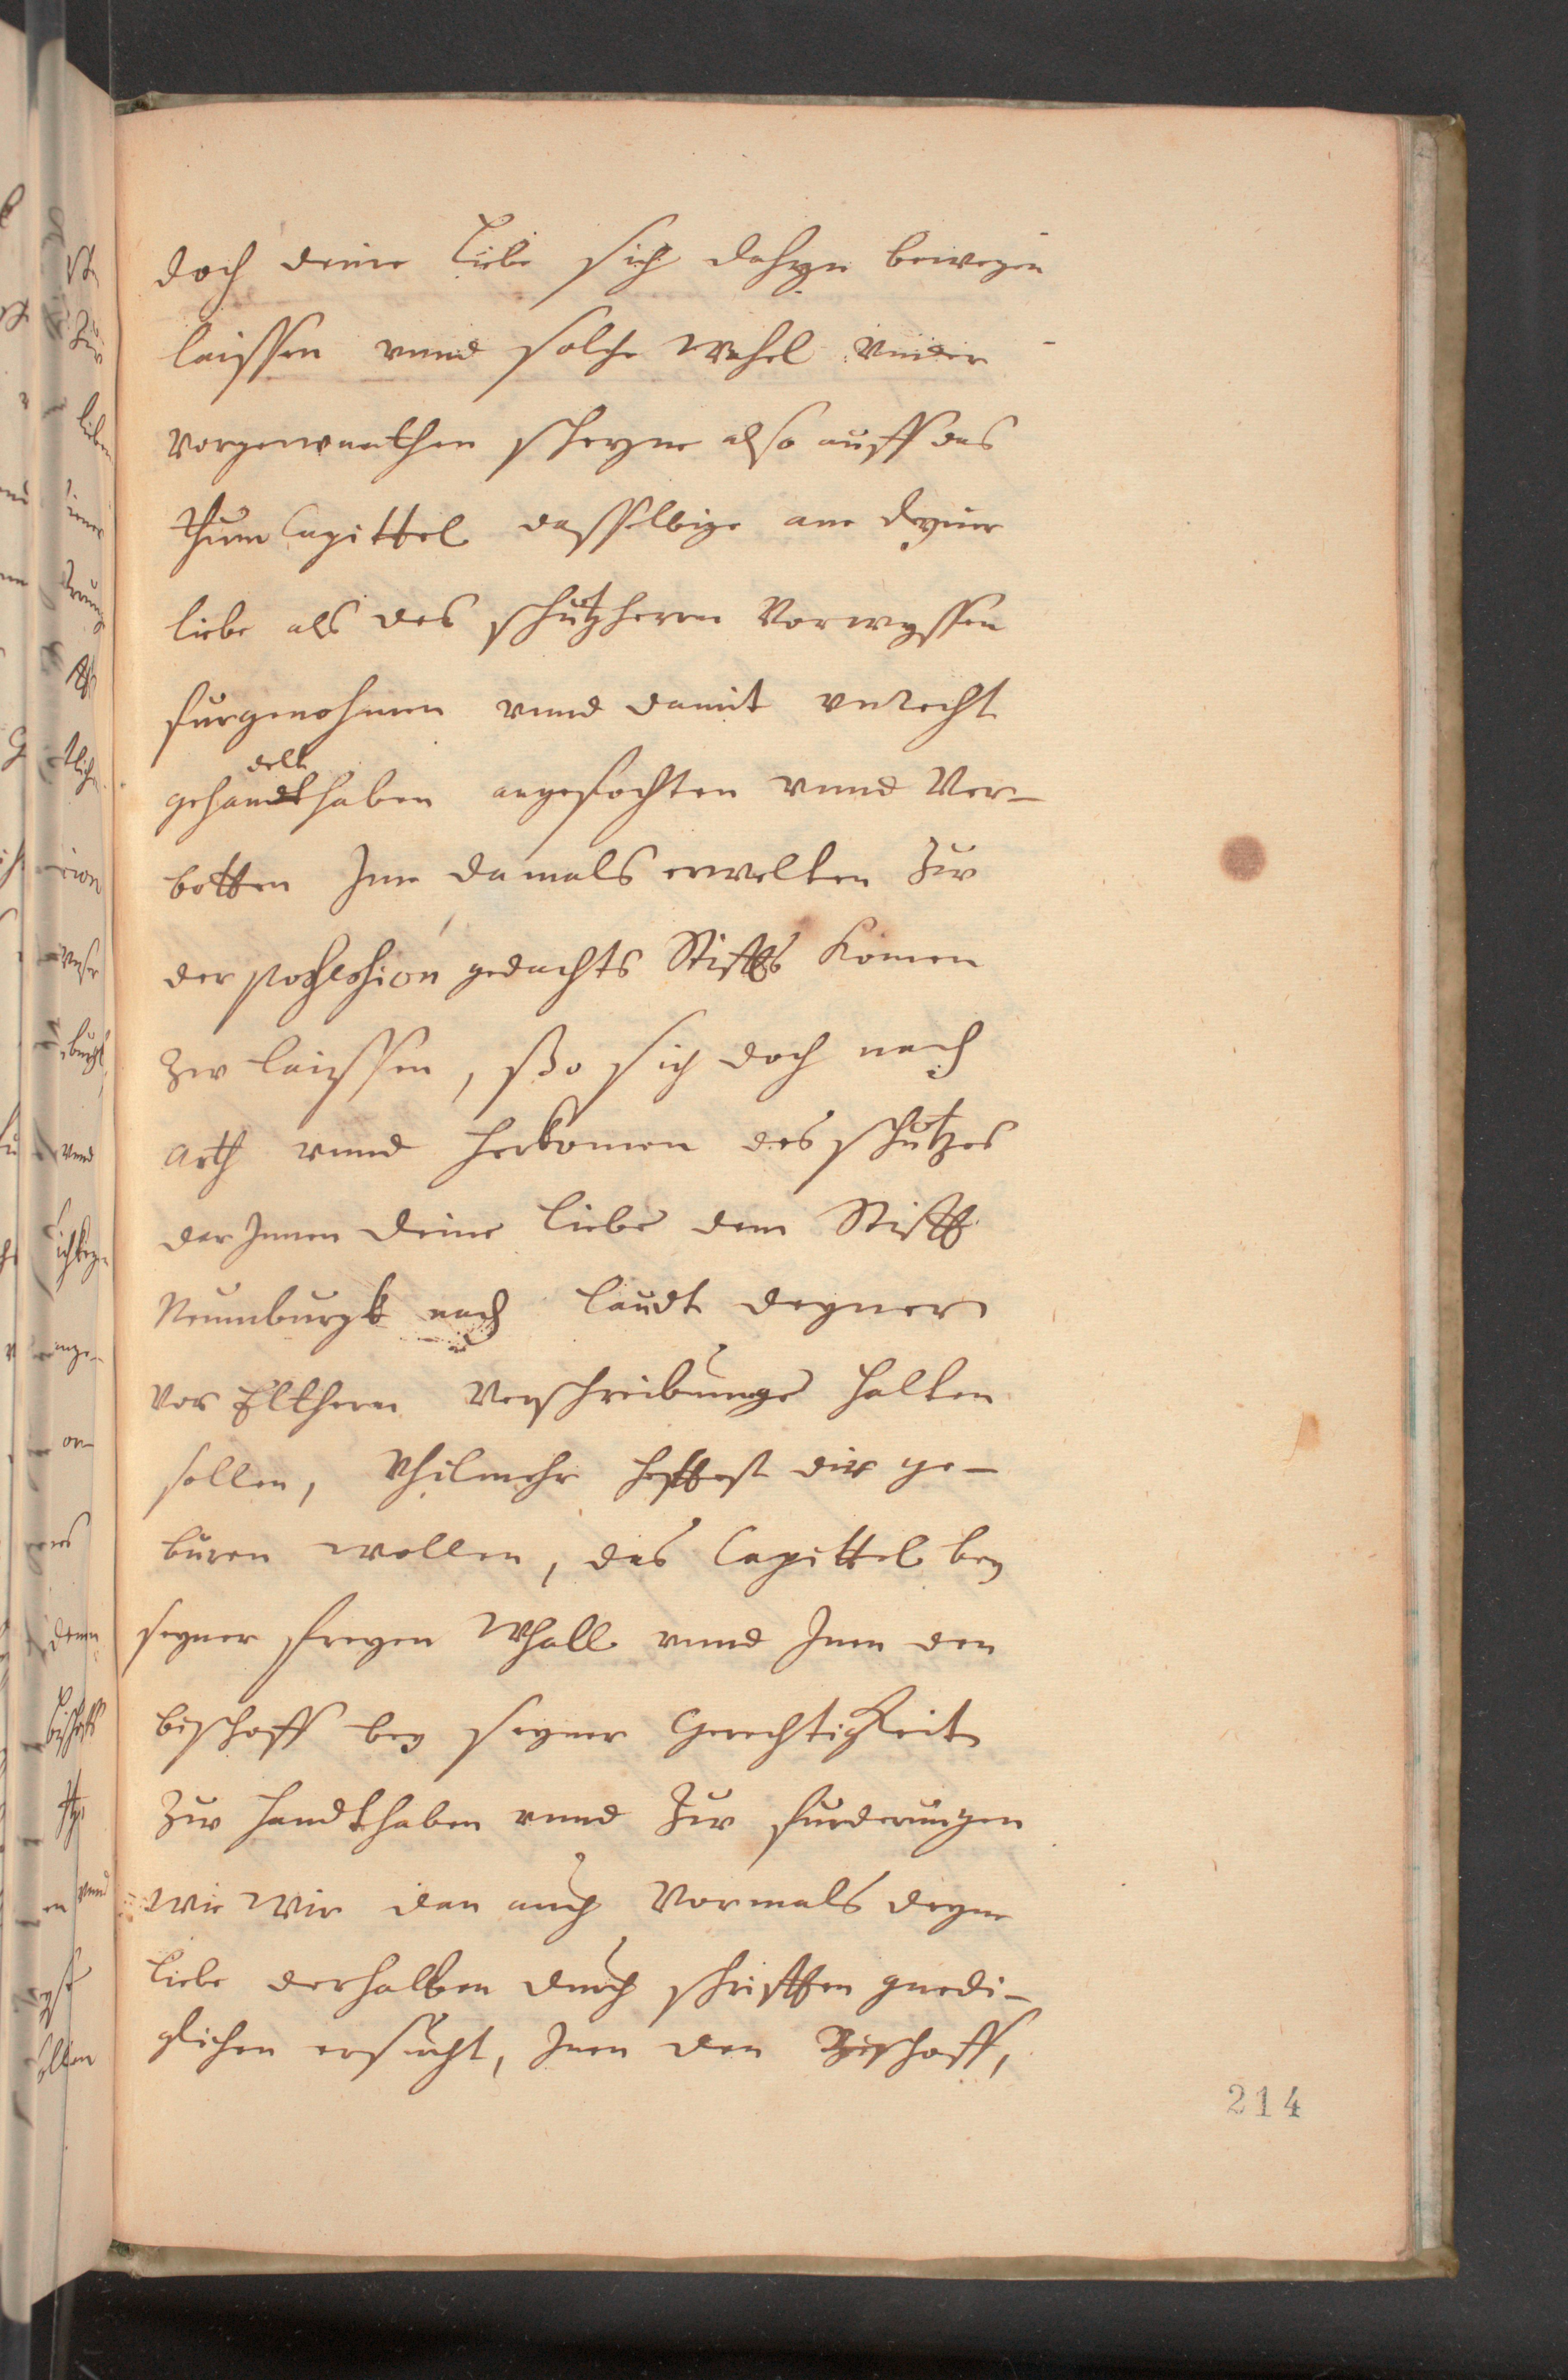 doch deine Liebe sich dahyn bewegen
laissen vnnd solche wahel vnder
vorgewanthen scheyne also auff das
Thum Capittel dasselbige ane deyner
liebe als des schutzherrn Vorwyssen
furgenohmen vnnd damit vnrecht
delt
gehandthaben angefochten vnnd Ver-
botten Jme damals erwelten Zur
der possession gedachts Stiffts komen
zw laissen, sso sich doch nach
arth vnnd herkomen des schutzes
dar Jnnen deine liebe dem Stifft
Neumburgk nach laudt deyner
vor Elthern Verschreibunge halten
sollen, Vhilmehr hettest dir ge-
buren wollen, das Capittel bey
seyner freyen Whall vnnd Jnen den
bischoff bey seyner Gerechtigkeit
Zur handthaben vnnd Zur furderungen
wie wir dan auch Vormals deyne
liebe derhalben durch schrifften gnedi-
glichen ersucht, Jnen den Bischoff,
214